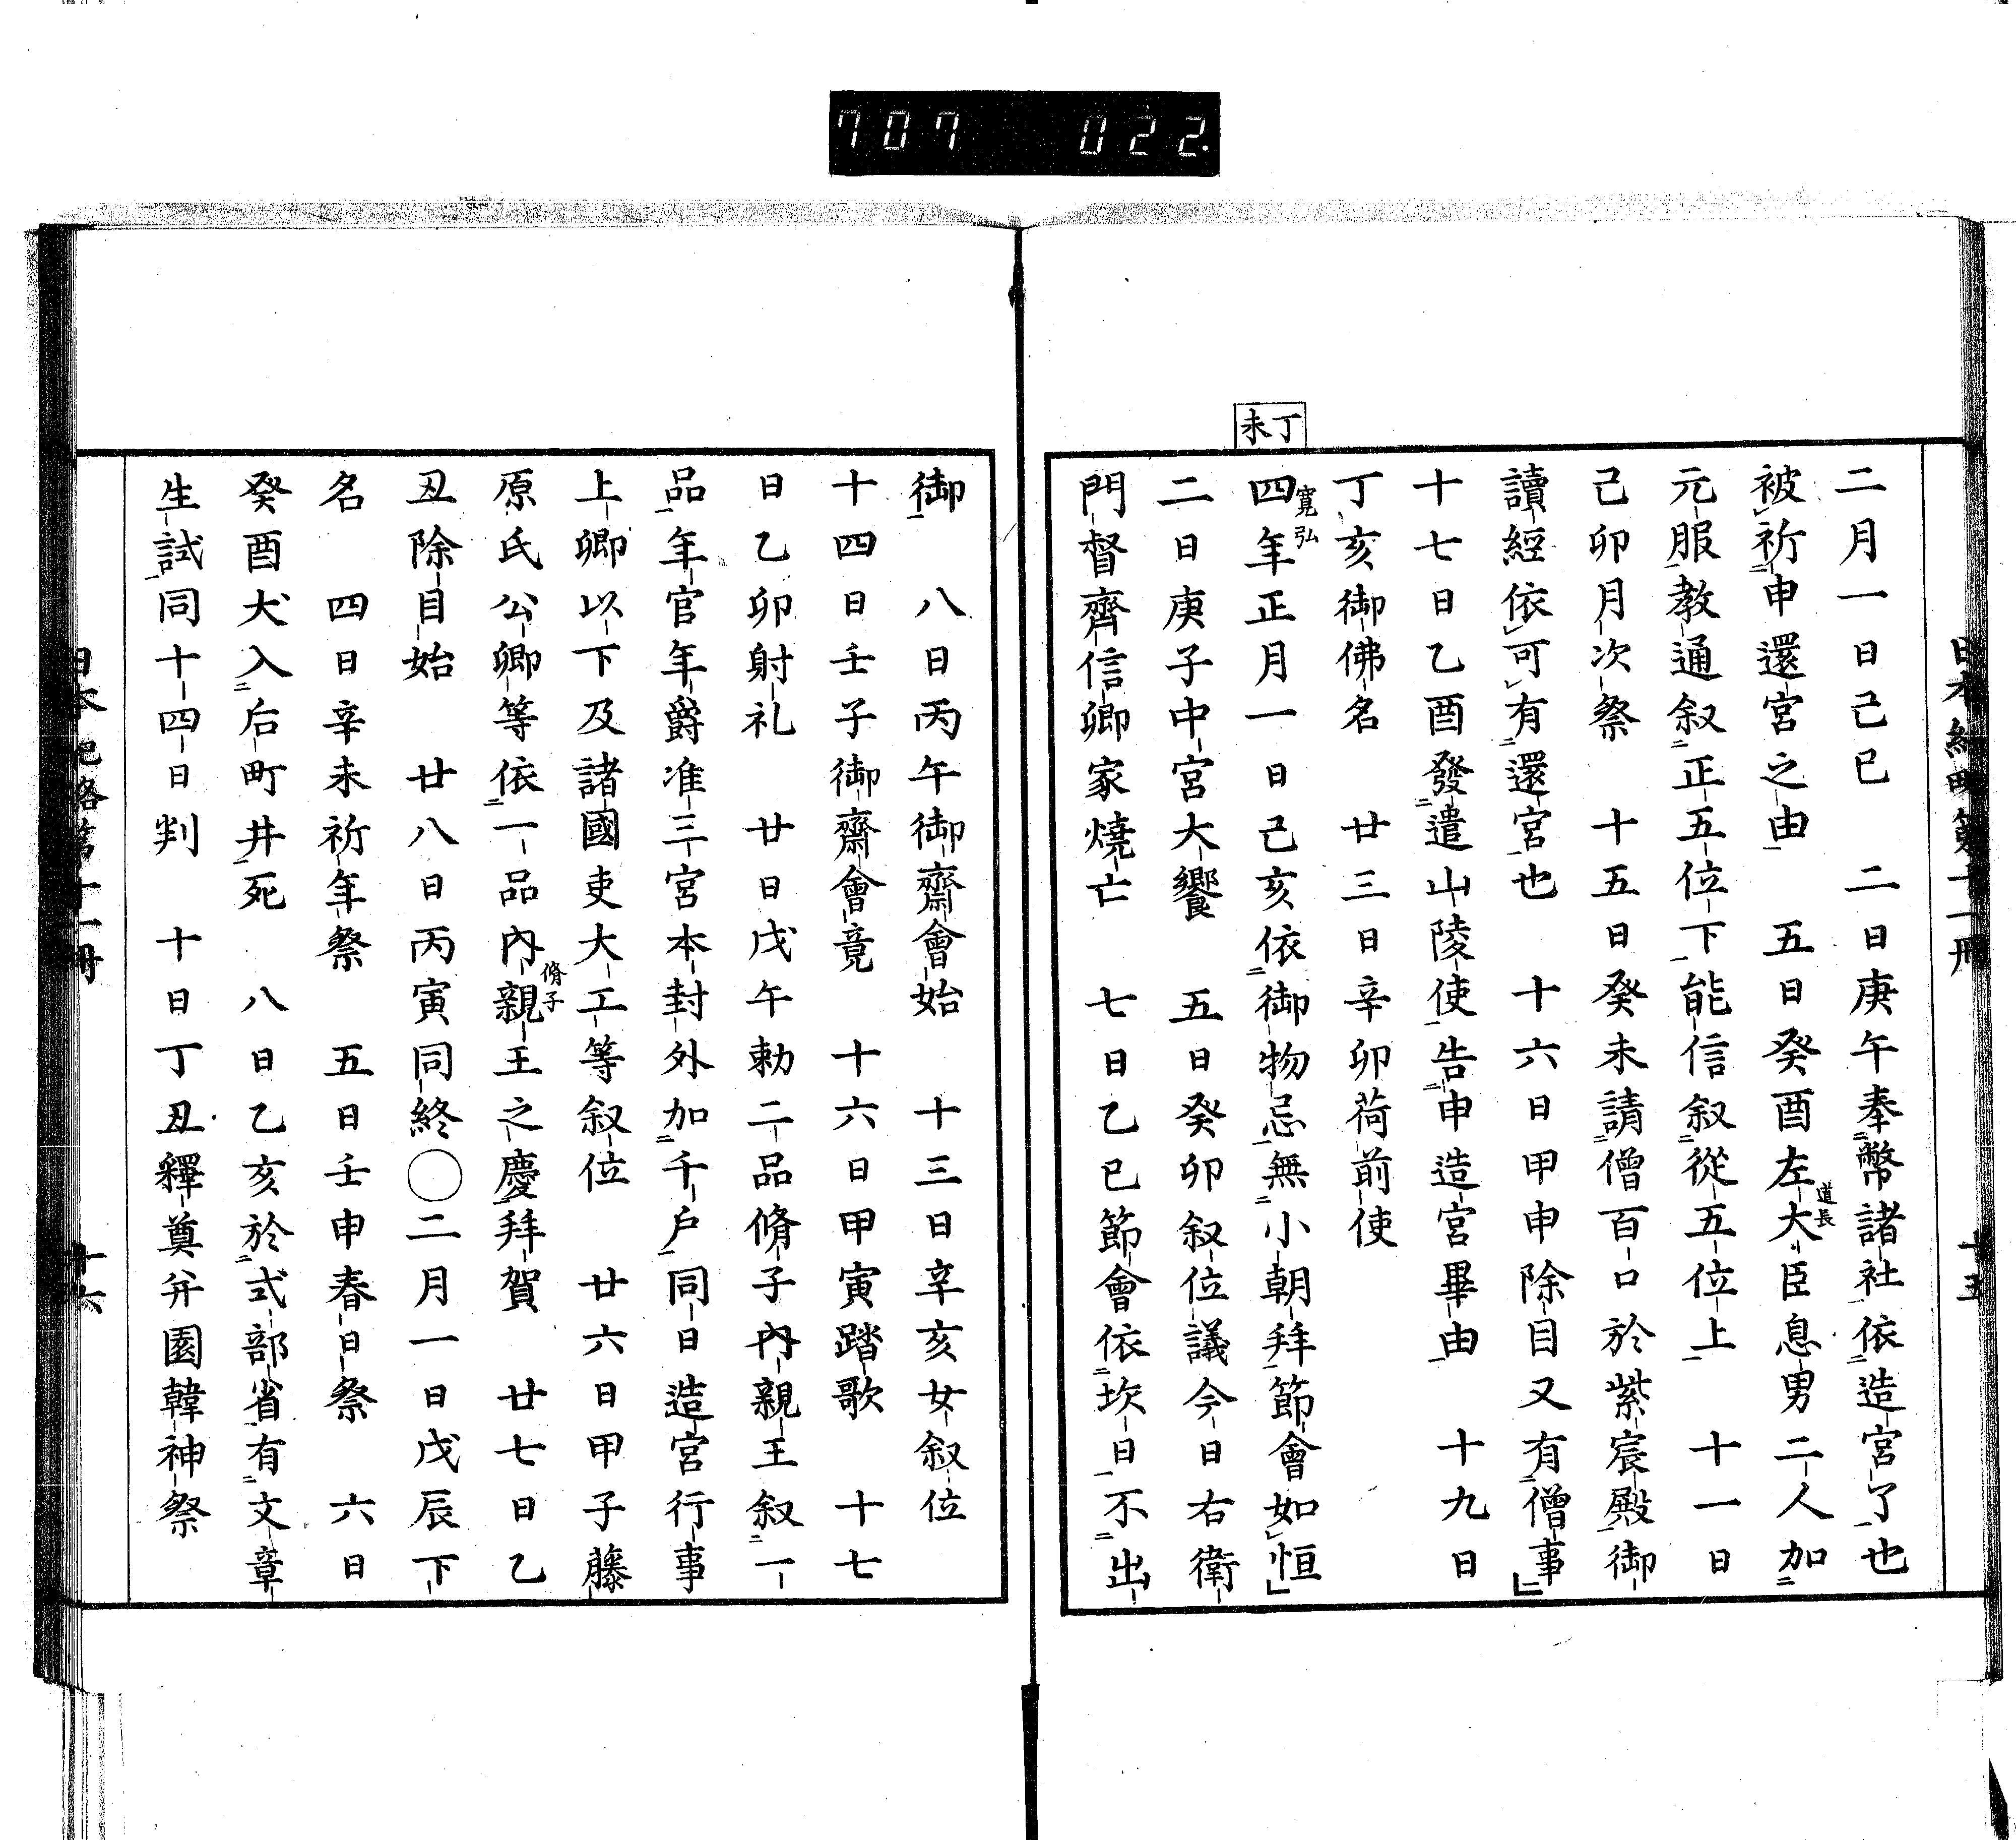 707 022.
日本紀略第十一冊 十五
二月一日己巳 二日庚午奉幣諸社依造宮了也
被祈申還宮之由 五日癸酉左大臣息男二人加
道長
元服教通叙正五位下能信叙從五位上 十一日
己卯月次祭 十五日癸未請僧百口於紫宸殿御
讀經依可有還宮也 十六日甲申除目又有僧事
十七日乙酉發遣山陵使告申造宮畢由 十九日
丁亥御佛名 廿三日辛卯荷前使
丁未
寛弘
四年正月一日己亥依御物忌無小朝拜節會如恒
二日庚子中宮大饗 五日癸卯叙位議今日右衛
門督齊信卿家燒亡 七日乙巳節會依坎日不出
御 八日丙午御齋會始 十三日辛亥女叙位
十四日壬子御齋會竟 十六日甲寅踏歌 十七
日乙卯射礼 廿日戊午勅二品脩子内親王叙一
品年官年爵准三宮本封外加千戶同日造宮行事
上卿以下及諸國吏大工等叙位 廿六日甲子藤
脩子
原氏公卿等依一品内親王之慶拜賀 廿七日乙
丑除目始 廿八日丙寅同終○二月一日戊辰下
名 四日辛未祈年祭 五日壬申春日祭 六日
癸酉犬入后町井死 八日乙亥於式部省有文章
生試同十四日判 十日丁丑釋奠并園韓神祭
日本紀略第十一冊 十六